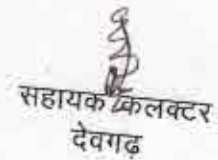 सहायक कलक्टर
देवगढ़